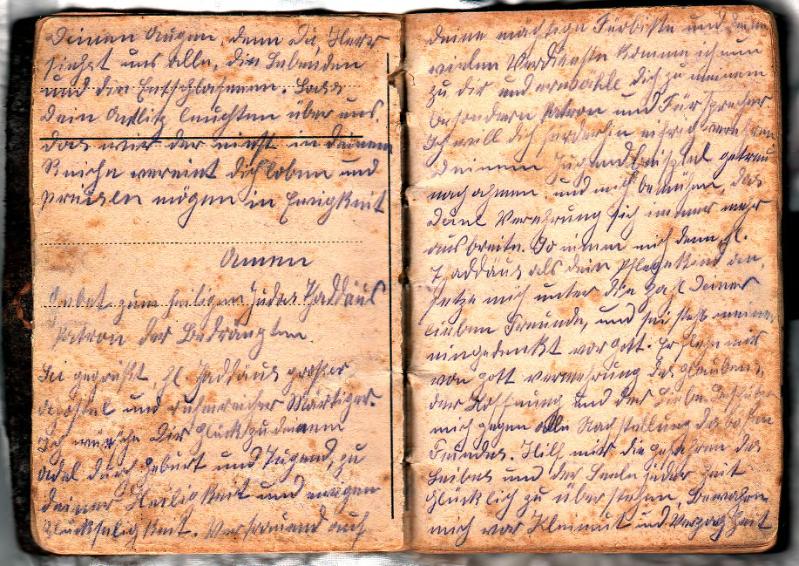 Deinen Augen, denn Du, Herr
siehst uns alle, die Lebenden
und die Entschlafenen. Lass
Dein Antlitz leuchten über uns
das wir der einst in Deinem
Reiche vereint Dich loben und
preisen mögen in Ewigkeit
Amen
Gebet zum heiligen Judas Thaddäus
Patron der Bedrängten.
Sei gegrüßt, hl. Thaddäus großer
Apostel und ruhmreicher Martirer.
Ich wünsche Dir Glück zu deinem
Adel durch Geburt und Tugend, zu
deiner Heiligkeit und ewigen
Glückseligkeit. Vertrauend auf
deine mächtige Fürbitte und deine
vielen Verdienste komme ich nun
zu dir und erwähle dich zu meinem
besondern Patron und Fürsprecher
Ich will dich fürderhin eifrig verehren
Deinem Tugendbeispiel getreu
nachahmen und mich bemühen, das
Deine Verehrung sich immer mehr
ausbreite. So nimm mich denn hl.
Thaddäus als dein Pflegekind an,
setze mich unter die Zahl deiner
lieben Freunde, und sei stets meiner
eingedenkt vor Gott. Erflehe mir
von Gott Vermehrung des Glaubens,
der Hoffnung und der Liebe. Beschütze
mich gegen alle Nachstellung des bösen
Feindes. Hilf mir die Gefahren des
Leibes und der Seele jeder Zeit
glücklich zu überstehen, bewahre
mich vor Kleinmut und Verzagtheit